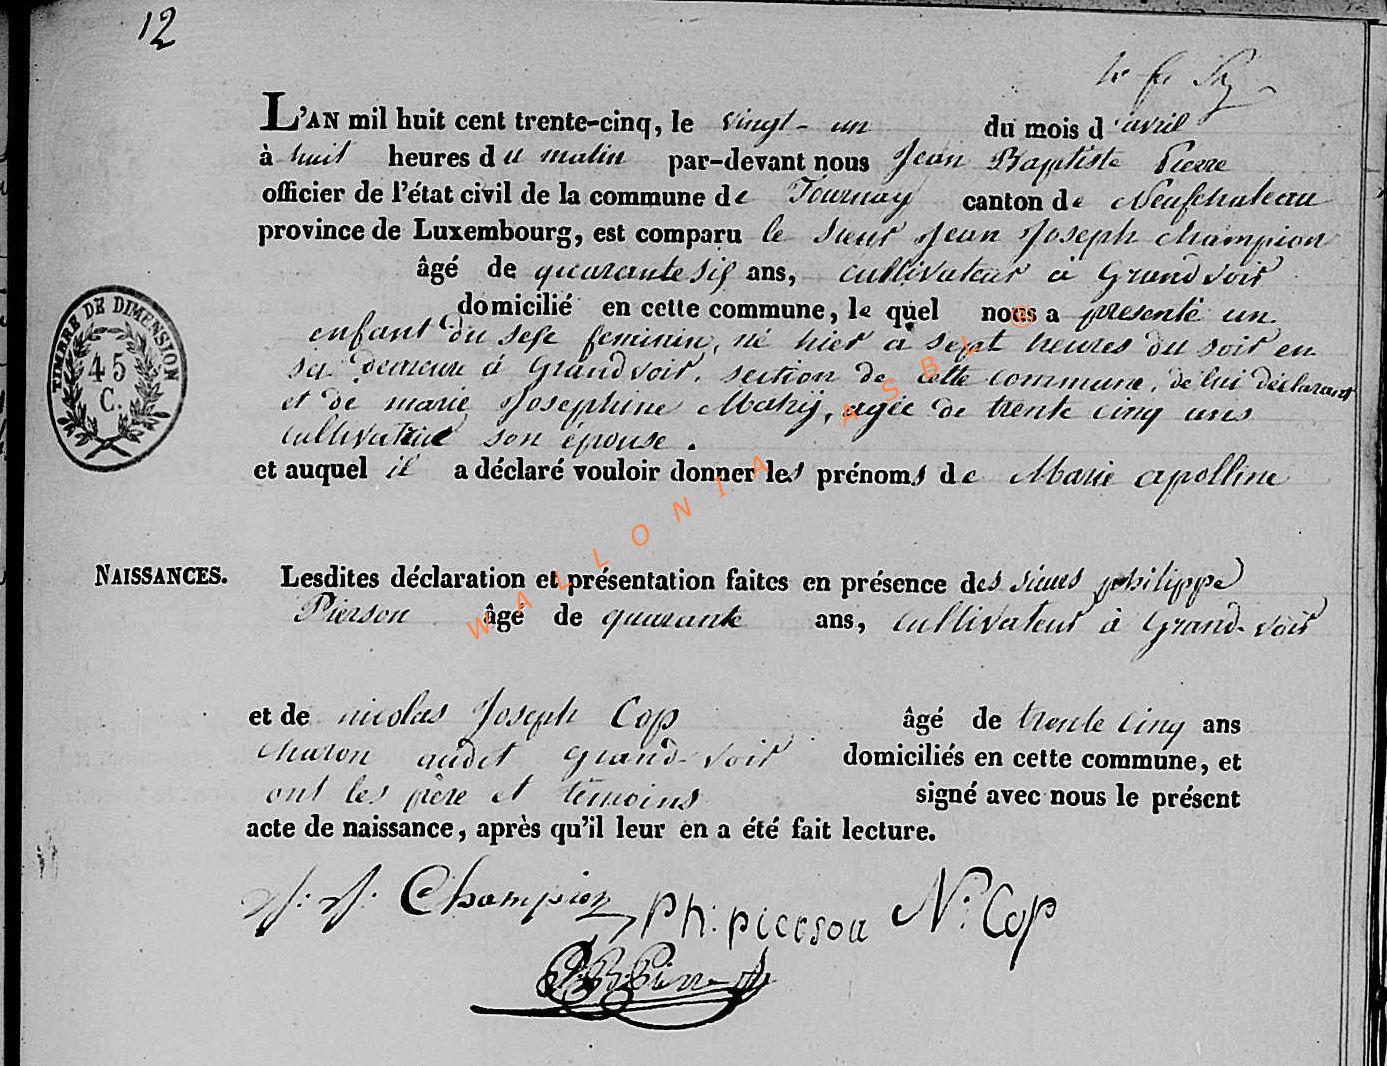 12
L'AN mil huit cent trente-cinq, le vingt-un du mois d'avril
à huit heures du matin par-devant nous Jean Baptiste Pierre
officier de l'état civil de la commune de Tournay canton de Neufchateau
province de Luxembourg, est comparu le sieur Jean Joseph Champion
âgé de quarante six ans, cultivateur à Grandvoir
domicilié en cette commune, lequel nous a presenté un
enfant du sexe feminin, né hier à sept heures du soir en
sa demeure à Grandvoir, section de cette commune, de lui déclarant
et de marie Josephine Mahij, agée de trente cinq ans
cultivatrice son épouse.
et auquel il a déclaré vouloir donner les prénoms de Marie apolline
NAISSANCES. Lesdites déclaration et présentation faites en présence des sieurs philippe
Pierson âgé de quarante ans, cultivateur à Grand-voir
et de nicolas Joseph Cop âgé de trente cinq ans
charon audit Grand-voir domiciliés en cette commune, et
ont les père et témoins signé avec nous le présent
acte de naissance, après qu'il leur en a été fait lecture.
J. J. Champion Ph. pierson N. Cop
J. B. Pierre
TIMBRE DE DIMENSION
45
C.
WALLONIA ASBL ©